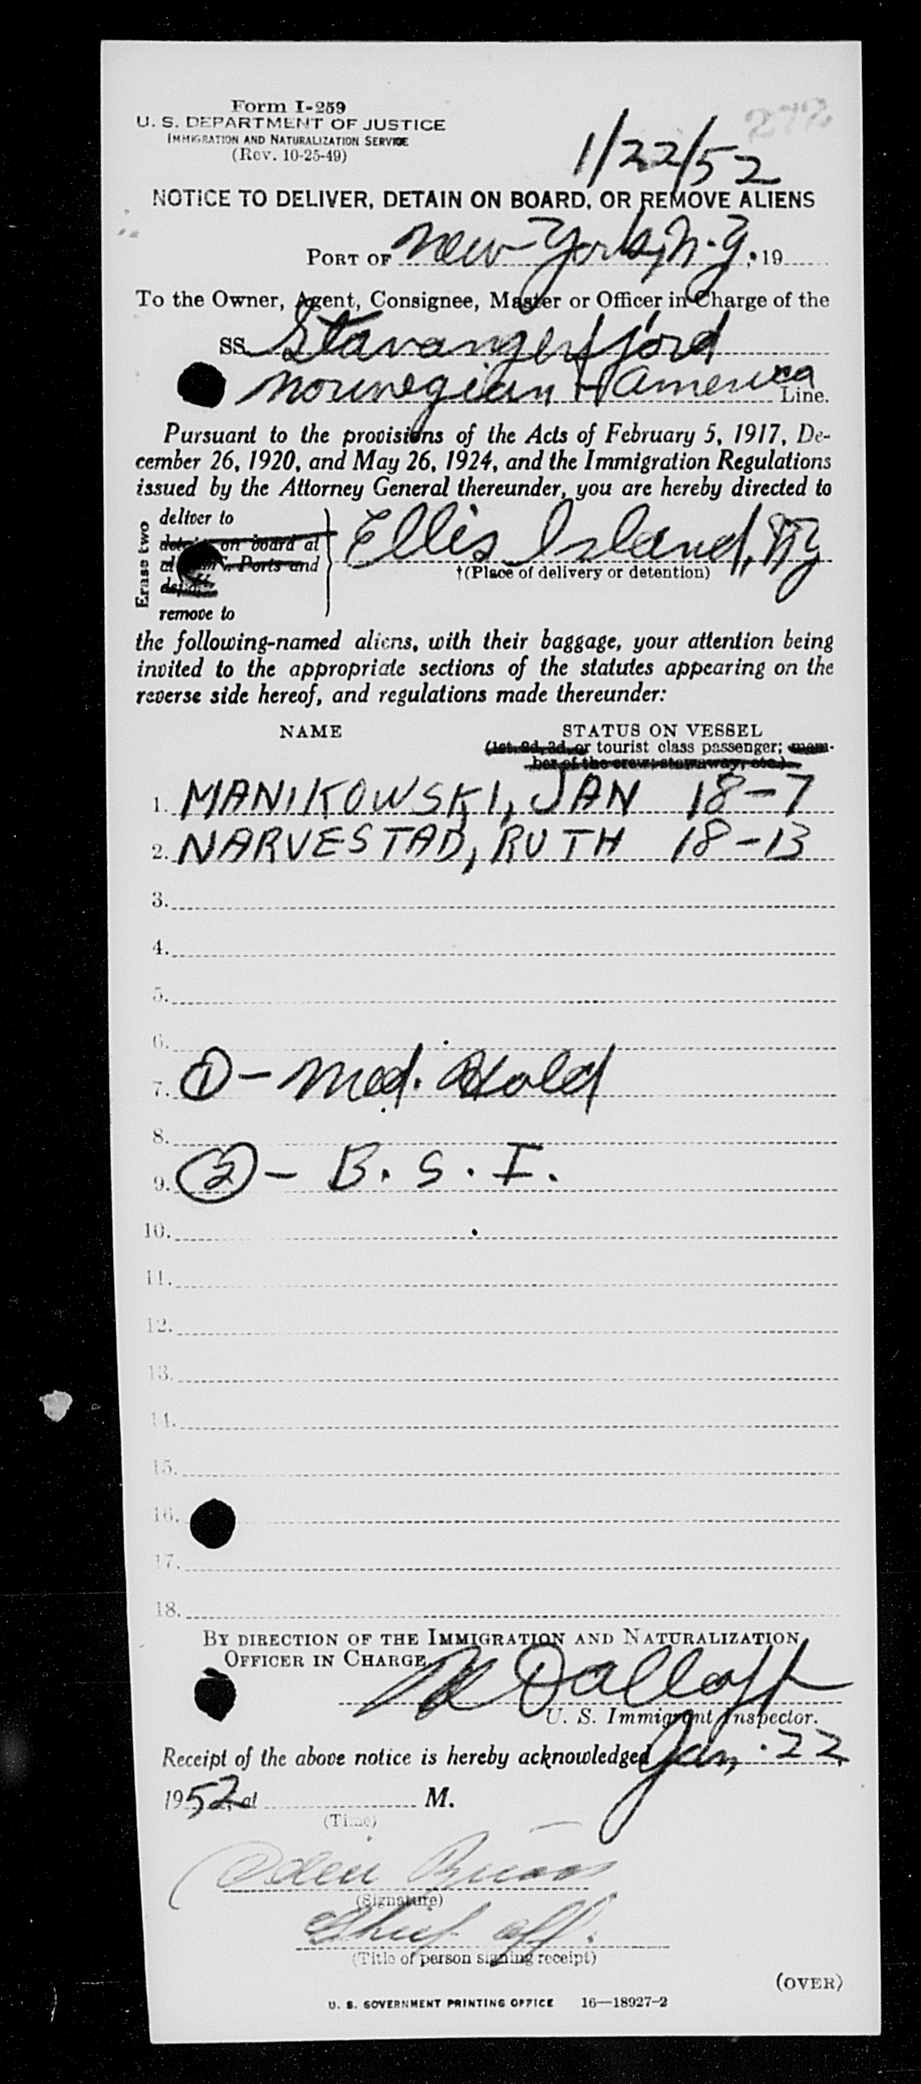 Form I-259
U. S. DEPARTMENT OF JUSTICE
IMMIGRATION AND NATURALIZATION SERVICE
(Rev. 10-25-49)
272
1/22/52
NOTICE TO DELIVER, DETAIN ON BOARD, OR REMOVE ALIENS
PORT OF New York, N.Y., 19
To the Owner, Agent, Consignee, Master or Officer in Charge of the
SS Stavangerfjord
Norwegian America Line.
Pursuant to the provisions of the Acts of February 5, 1917, De-
cember 26, 1920, and May 26, 1924, and the Immigration Regulations
issued by the Attorney General thereunder, you are hereby directed to
Erase two
deliver to
detain on board at
Ports and
remove to
Ellis Island, NY
†(Place of delivery or detention)
the following-named aliens, with their baggage, your attention being
invited to the appropriate sections of the statutes appearing on the
reverse side hereof, and regulations made thereunder:
NAME STATUS ON VESSEL
(1st, 2d, 3d, or tourist class passenger; mem-
ber of the crew; stowaway, etc.)
1. MANIKOWSKI, JAN 18-7
2. NARVESTAD, RUTH 18-13
3.
4.
5.
6.
7. ① - Med. Hold
8.
9. ② - B. S. I.
10.
11.
12.
13.
14.
15.
16.
17.
18.
BY DIRECTION OF THE IMMIGRATION AND NATURALIZATION
OFFICER IN CHARGE
U. S. Immigrant Inspector.
Receipt of the above notice is hereby acknowledged Jan. 22
1952, at M.
(Time)
(Signature)
Chief off.
(Title of person signing receipt)
(OVER)
U. S. GOVERNMENT PRINTING OFFICE 16—18927-2